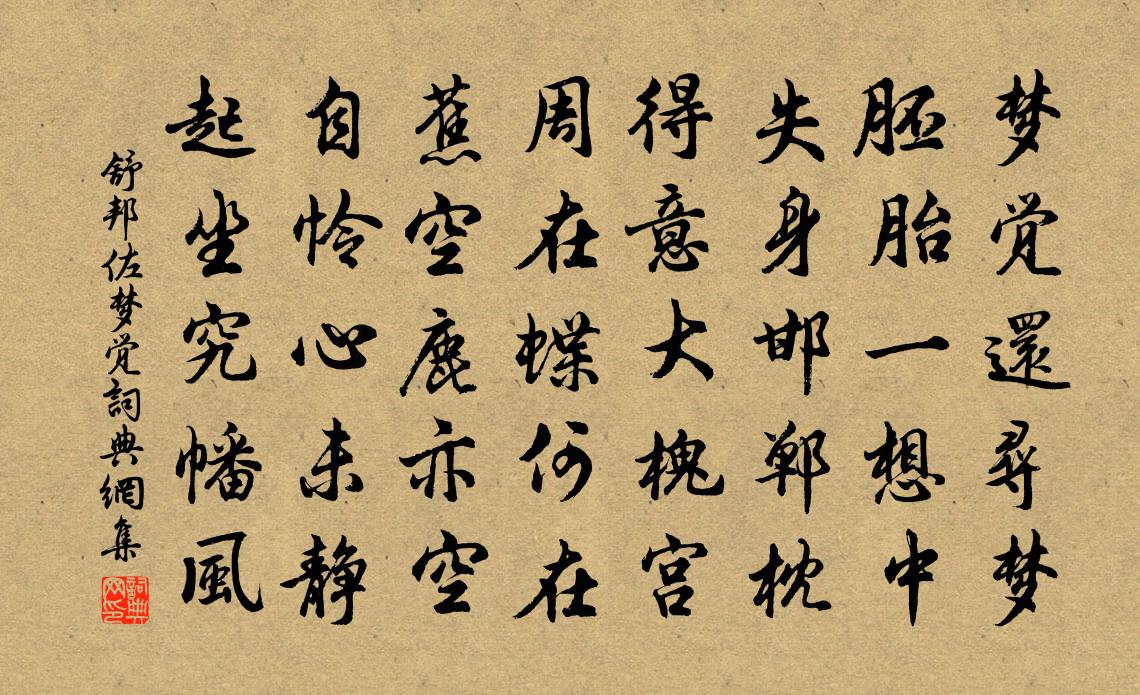 梦觉還尋梦
胚胎一想中
失身邯鄲枕
得意大槐宫
周在蝶何在
蕉空鹿亦空
自怜心未静
起坐究幡風
舒邦佐梦觉詞典網集
詞典网印